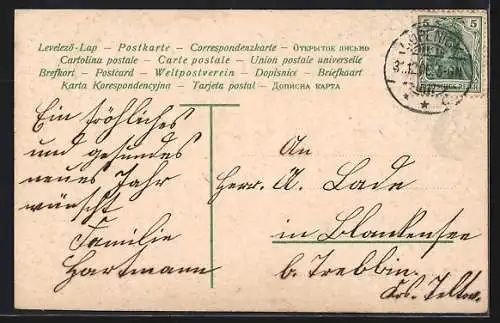 Levelező-Lap – Postkarte – Correspondenzkarte – Открытое письмо
Cartolina postale – Carte postale – Union postale universelle
Brefkort – Postcard – Weltpostverein – Dopisnice – Briefkaart
Karta Korespondencyjna – Tarjeta postal – Дописна карта
5 5
Ein fröhliches
und gesundes
neues Jahr
wünscht
Familie
Hartmann
An
Herr. A. Lade
in Blankensee
b. Trebbin.
Krs. Teltow.